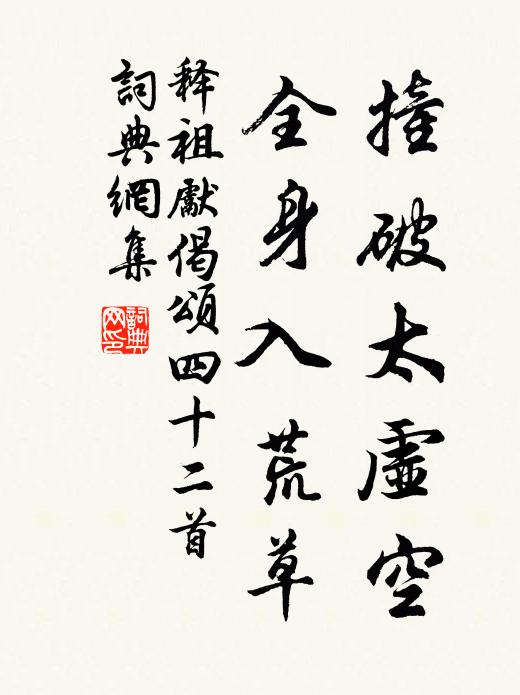 撞破太虛空
全身入荒草
释祖獻偈頌四十二首
詞典網集
詞典
网印